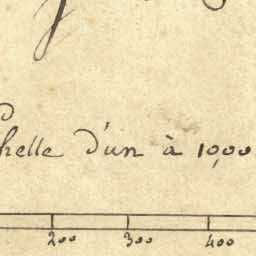 helle d'un à 10,00
200 300 400